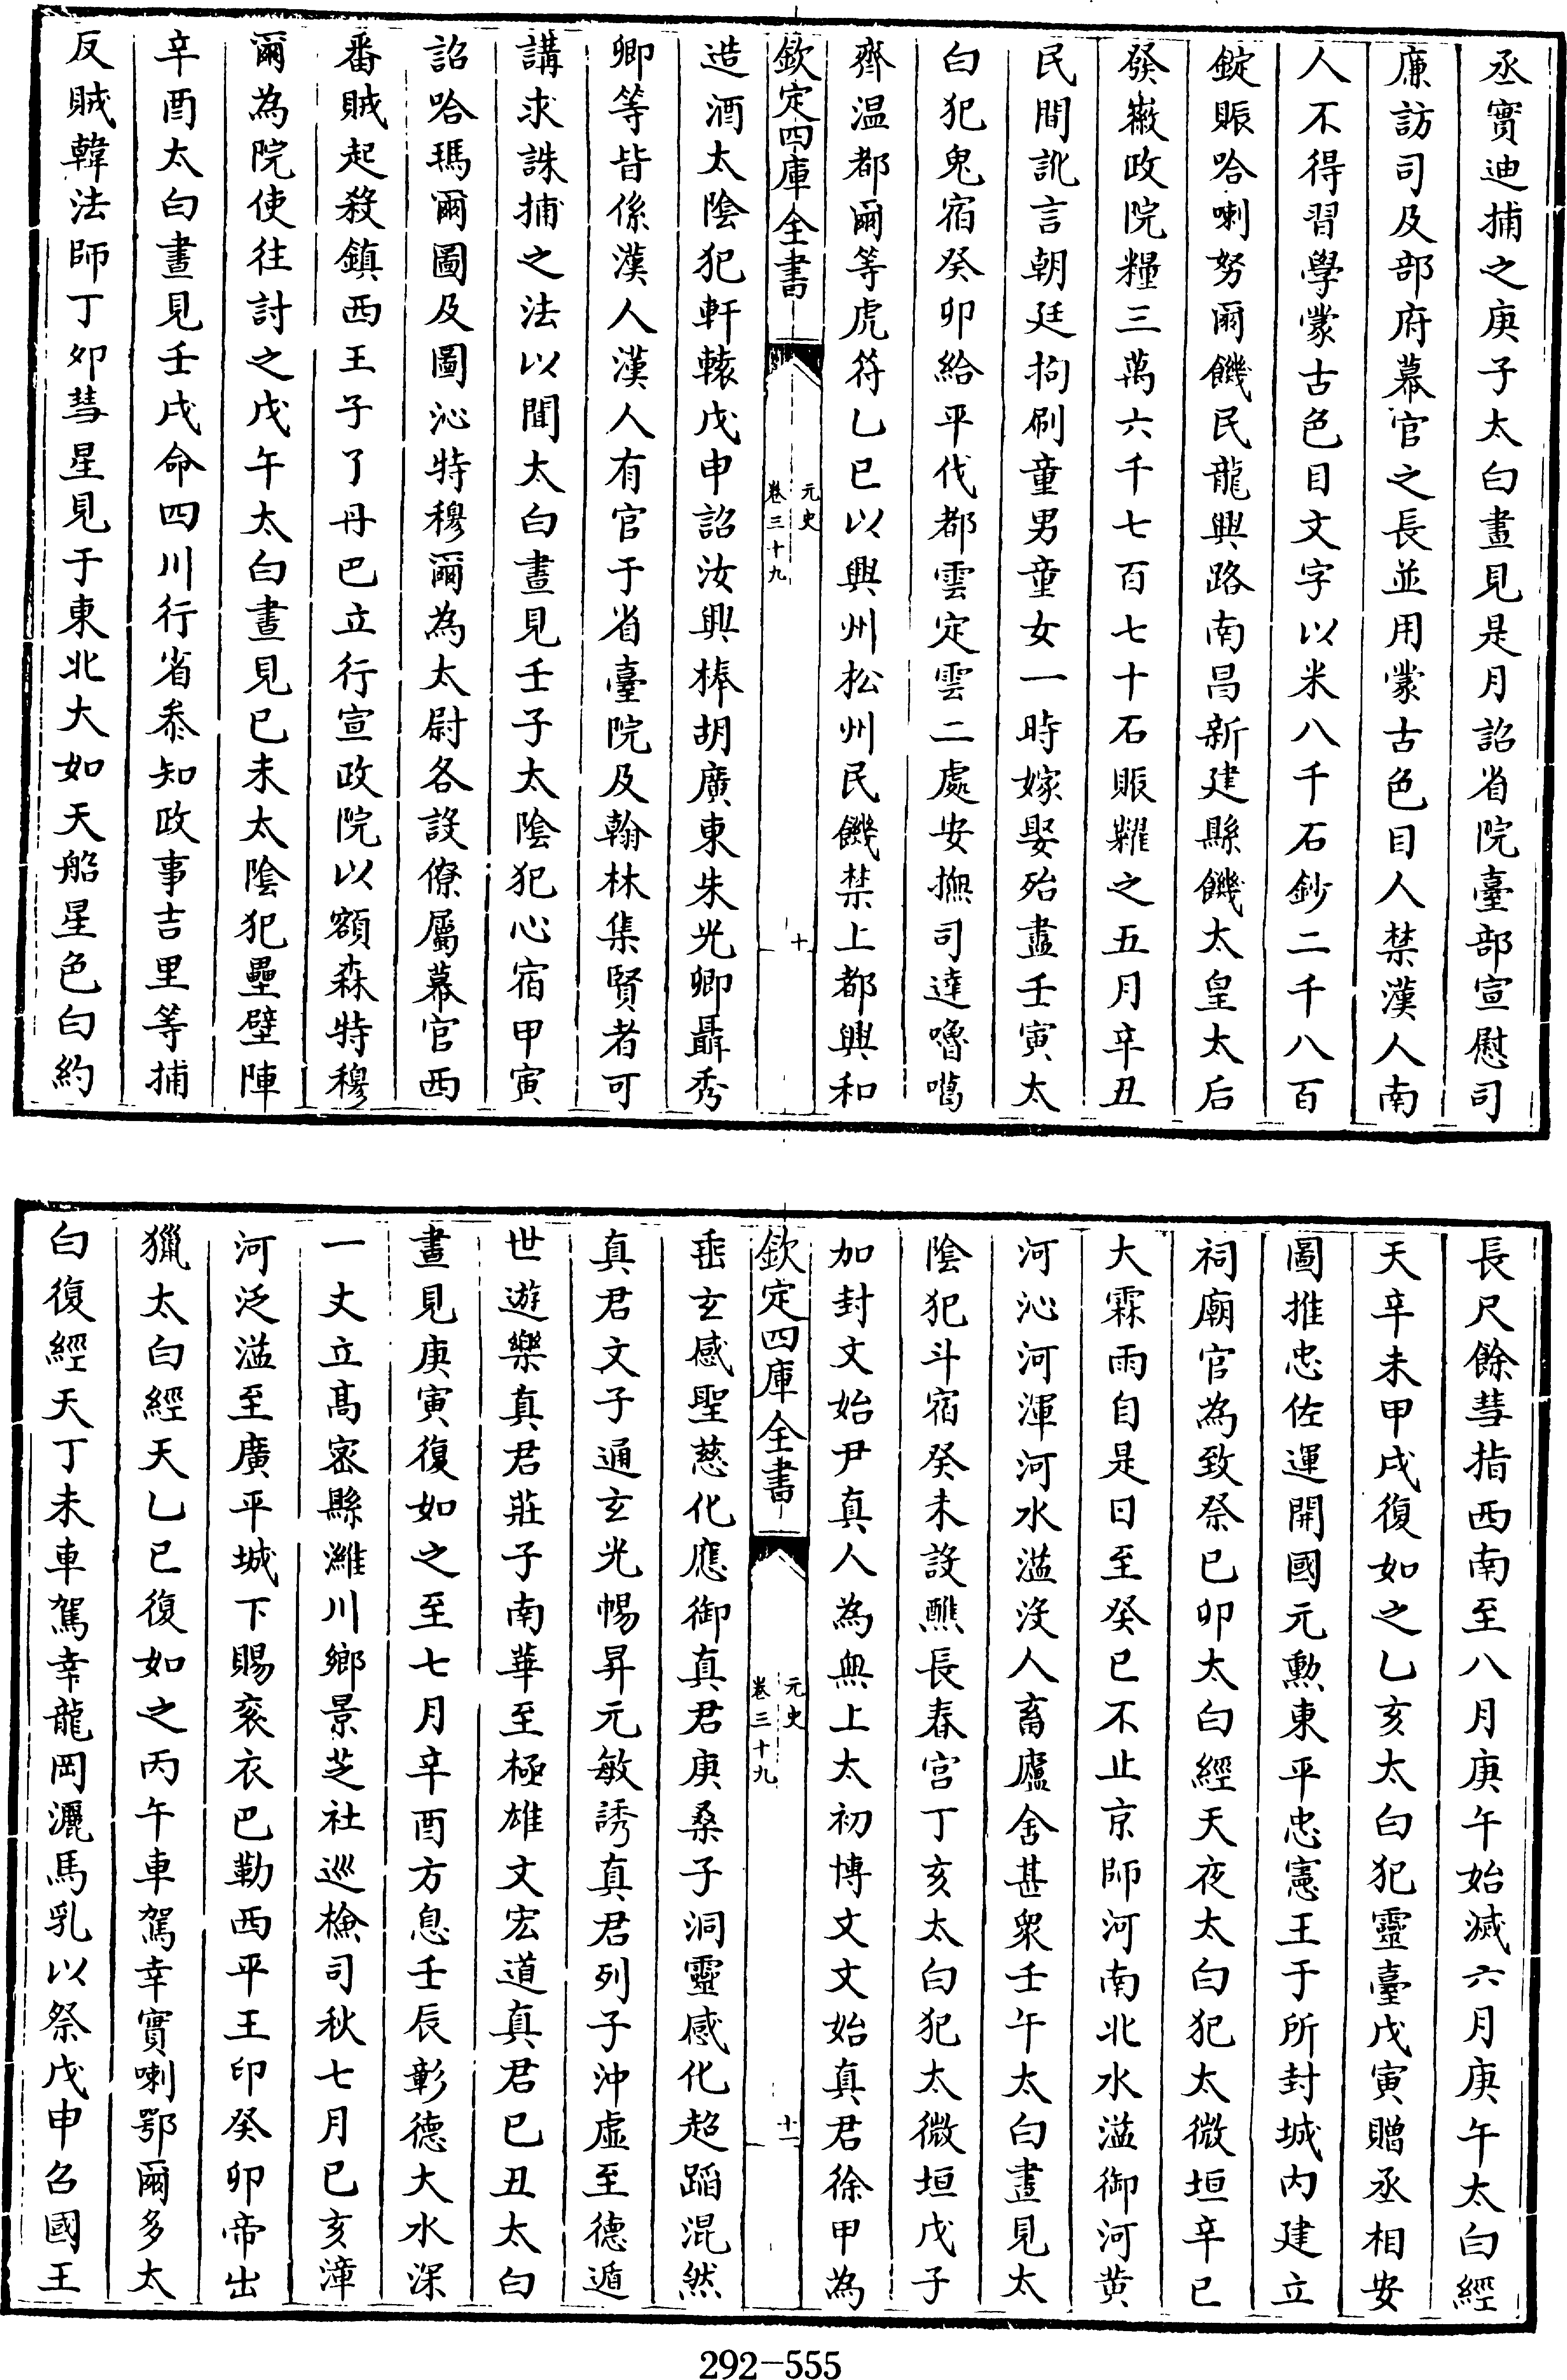 丞實迪捕之庚子太白晝見是月詔省院臺部宣慰司
廉訪司及部府幕官之長並用蒙古色目人禁漢人南
人不得習學蒙古色目文字以米八千石鈔二千八百
錠賑哈喇努爾饑民龍興路南昌新建縣饑太皇太后
發徽政院糧三萬六千七百七十石賑糶之五月辛丑
民間訛言朝廷拘刷童男童女一時嫁娶殆盡壬寅太
白犯鬼宿癸卯給平伐都雲定雲二處安撫司達嚕噶
齊温都爾等虎符乙巳以興州松州民饑禁上都興和
欽定四庫全書
元史
卷三十九
十
造酒太陰犯軒轅戊申詔汝興棒胡廣東朱光卿聶秀
卿等皆係漢人漢人有官于省臺院及翰林集賢者可
講求誅捕之法以聞太白晝見壬子太陰犯心宿甲寅
詔哈瑪爾圖及圖沁特穆爾為太尉各設僚屬幕官西
番賊起殺鎮西王子了丹巴立行宣政院以額森特穆
爾為院使往討之戊午太白晝見已未太陰犯壘壁陣
辛酉太白晝見壬戌命四川行省叅知政事吉里等捕
反賊韓法師丁夘彗星見于東北大如天船星色白約
長尺餘彗指西南至八月庚午始滅六月庚午太白經
天辛未甲戌復如之乙亥太白犯靈臺戊寅贈丞相安
圖推忠佐運開國元勲東平忠憲王于所封城内建立
祠廟官為致祭已卯太白經天夜太白犯太微垣辛已
大霖雨自是日至癸已不止京師河南北水溢御河黄
河沁河渾河水溢没人畜廬舍甚衆壬午太白晝見太
陰犯斗宿癸未設醮長春宫丁亥太白犯太微垣戊子
加封文始尹真人為無上太初博文文始真君徐甲為
欽定四庫全書
元史
卷三十九
十一
垂玄感聖慈化應御真君庚桑子洞靈感化超蹈混然
真君文子通玄光暢昇元敏誘真君列子沖虚至德遁
世遊樂真君莊子南華至極雄文宏道真君已丑太白
晝見庚寅復如之至七月辛酉方息壬辰彰德大水深
一丈立高宻縣濰川鄉景芝社巡檢司秋七月已亥漳
河泛溢至廣平城下賜衮衣巴勒西平王印癸卯帝出
獵太白經天乙已復如之丙午車駕幸實喇鄂爾多太
白復經天丁未車駕幸龍岡灑馬乳以祭戊申召國王
292-555